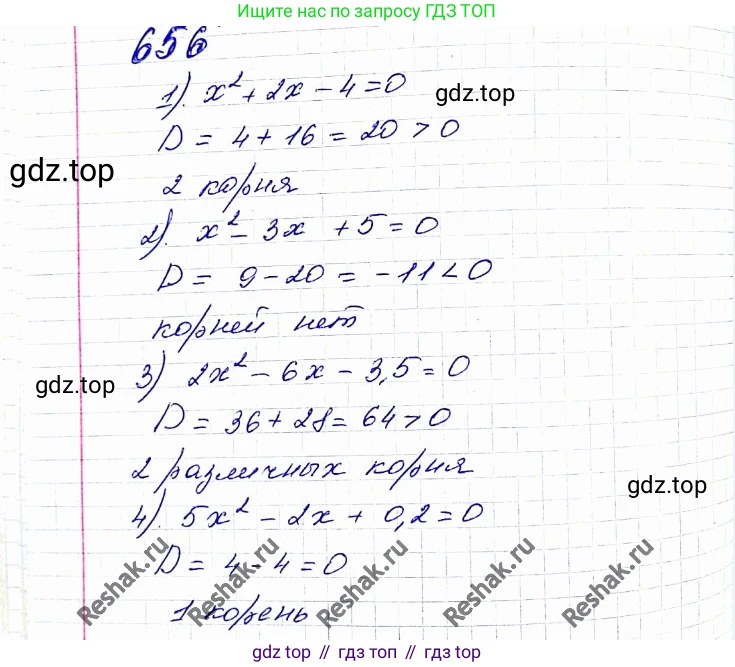 Ищите нас по запросу ГДЗ ТОП
656
1). x² + 2x - 4 = 0
gdz.top
D = 4 + 16 = 20 > 0
gdz.top
2 корня
2). x² - 3x + 5 = 0
D = 9 - 20 = -11 < 0
корней нет
3) 2x² - 6x - 3,5 = 0
gdz.top
D = 36 + 28 = 64 > 0
2 различных корня
gdz.top
4). 5x² - 2x + 0,2 = 0
D = 4 - 4 = 0
1 корень
Reshak.ru Reshak.ru Reshak.ru Reshak.ru Reshak.ru
gdz top // гдз топ // gdz.top